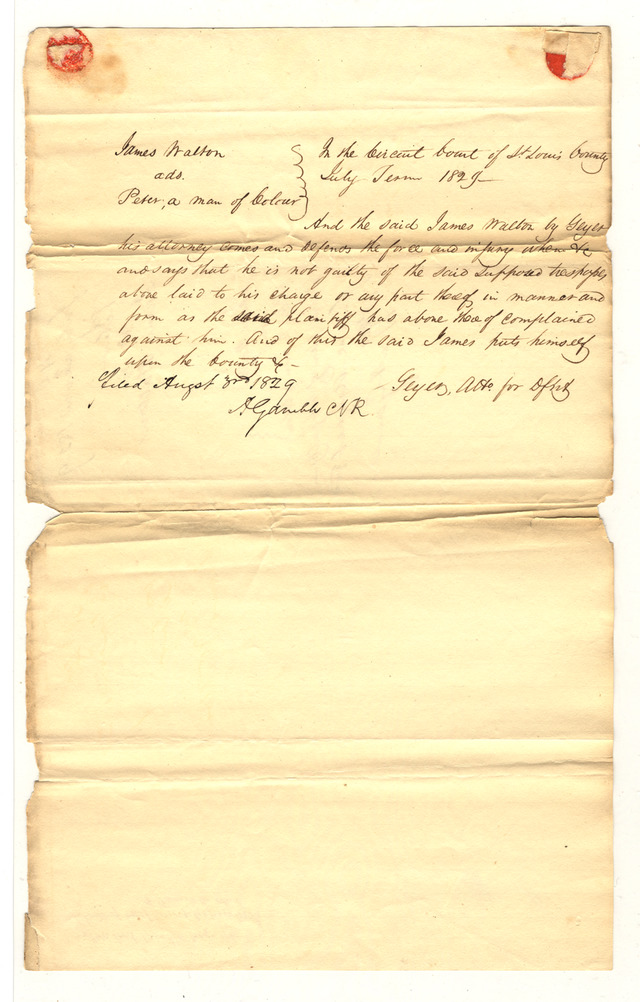 James Walton } In the Circuit Court of St Louis County
ads. July Term 1829
Peter, a man of Colour
And the said James Walton by Geyer
his attorney comes and defends the force and injury when &c
and says that he is not guilty of the said supposed trespasses
above laid to his charge or any part thereof in manner and
form as the said plaintiff has above thereof complained
against him. And of this the said James puts himself
upon the County &c
Geyer, Atto for Dfnt
Filed Augst 3rd 1829
A Gamble Clk